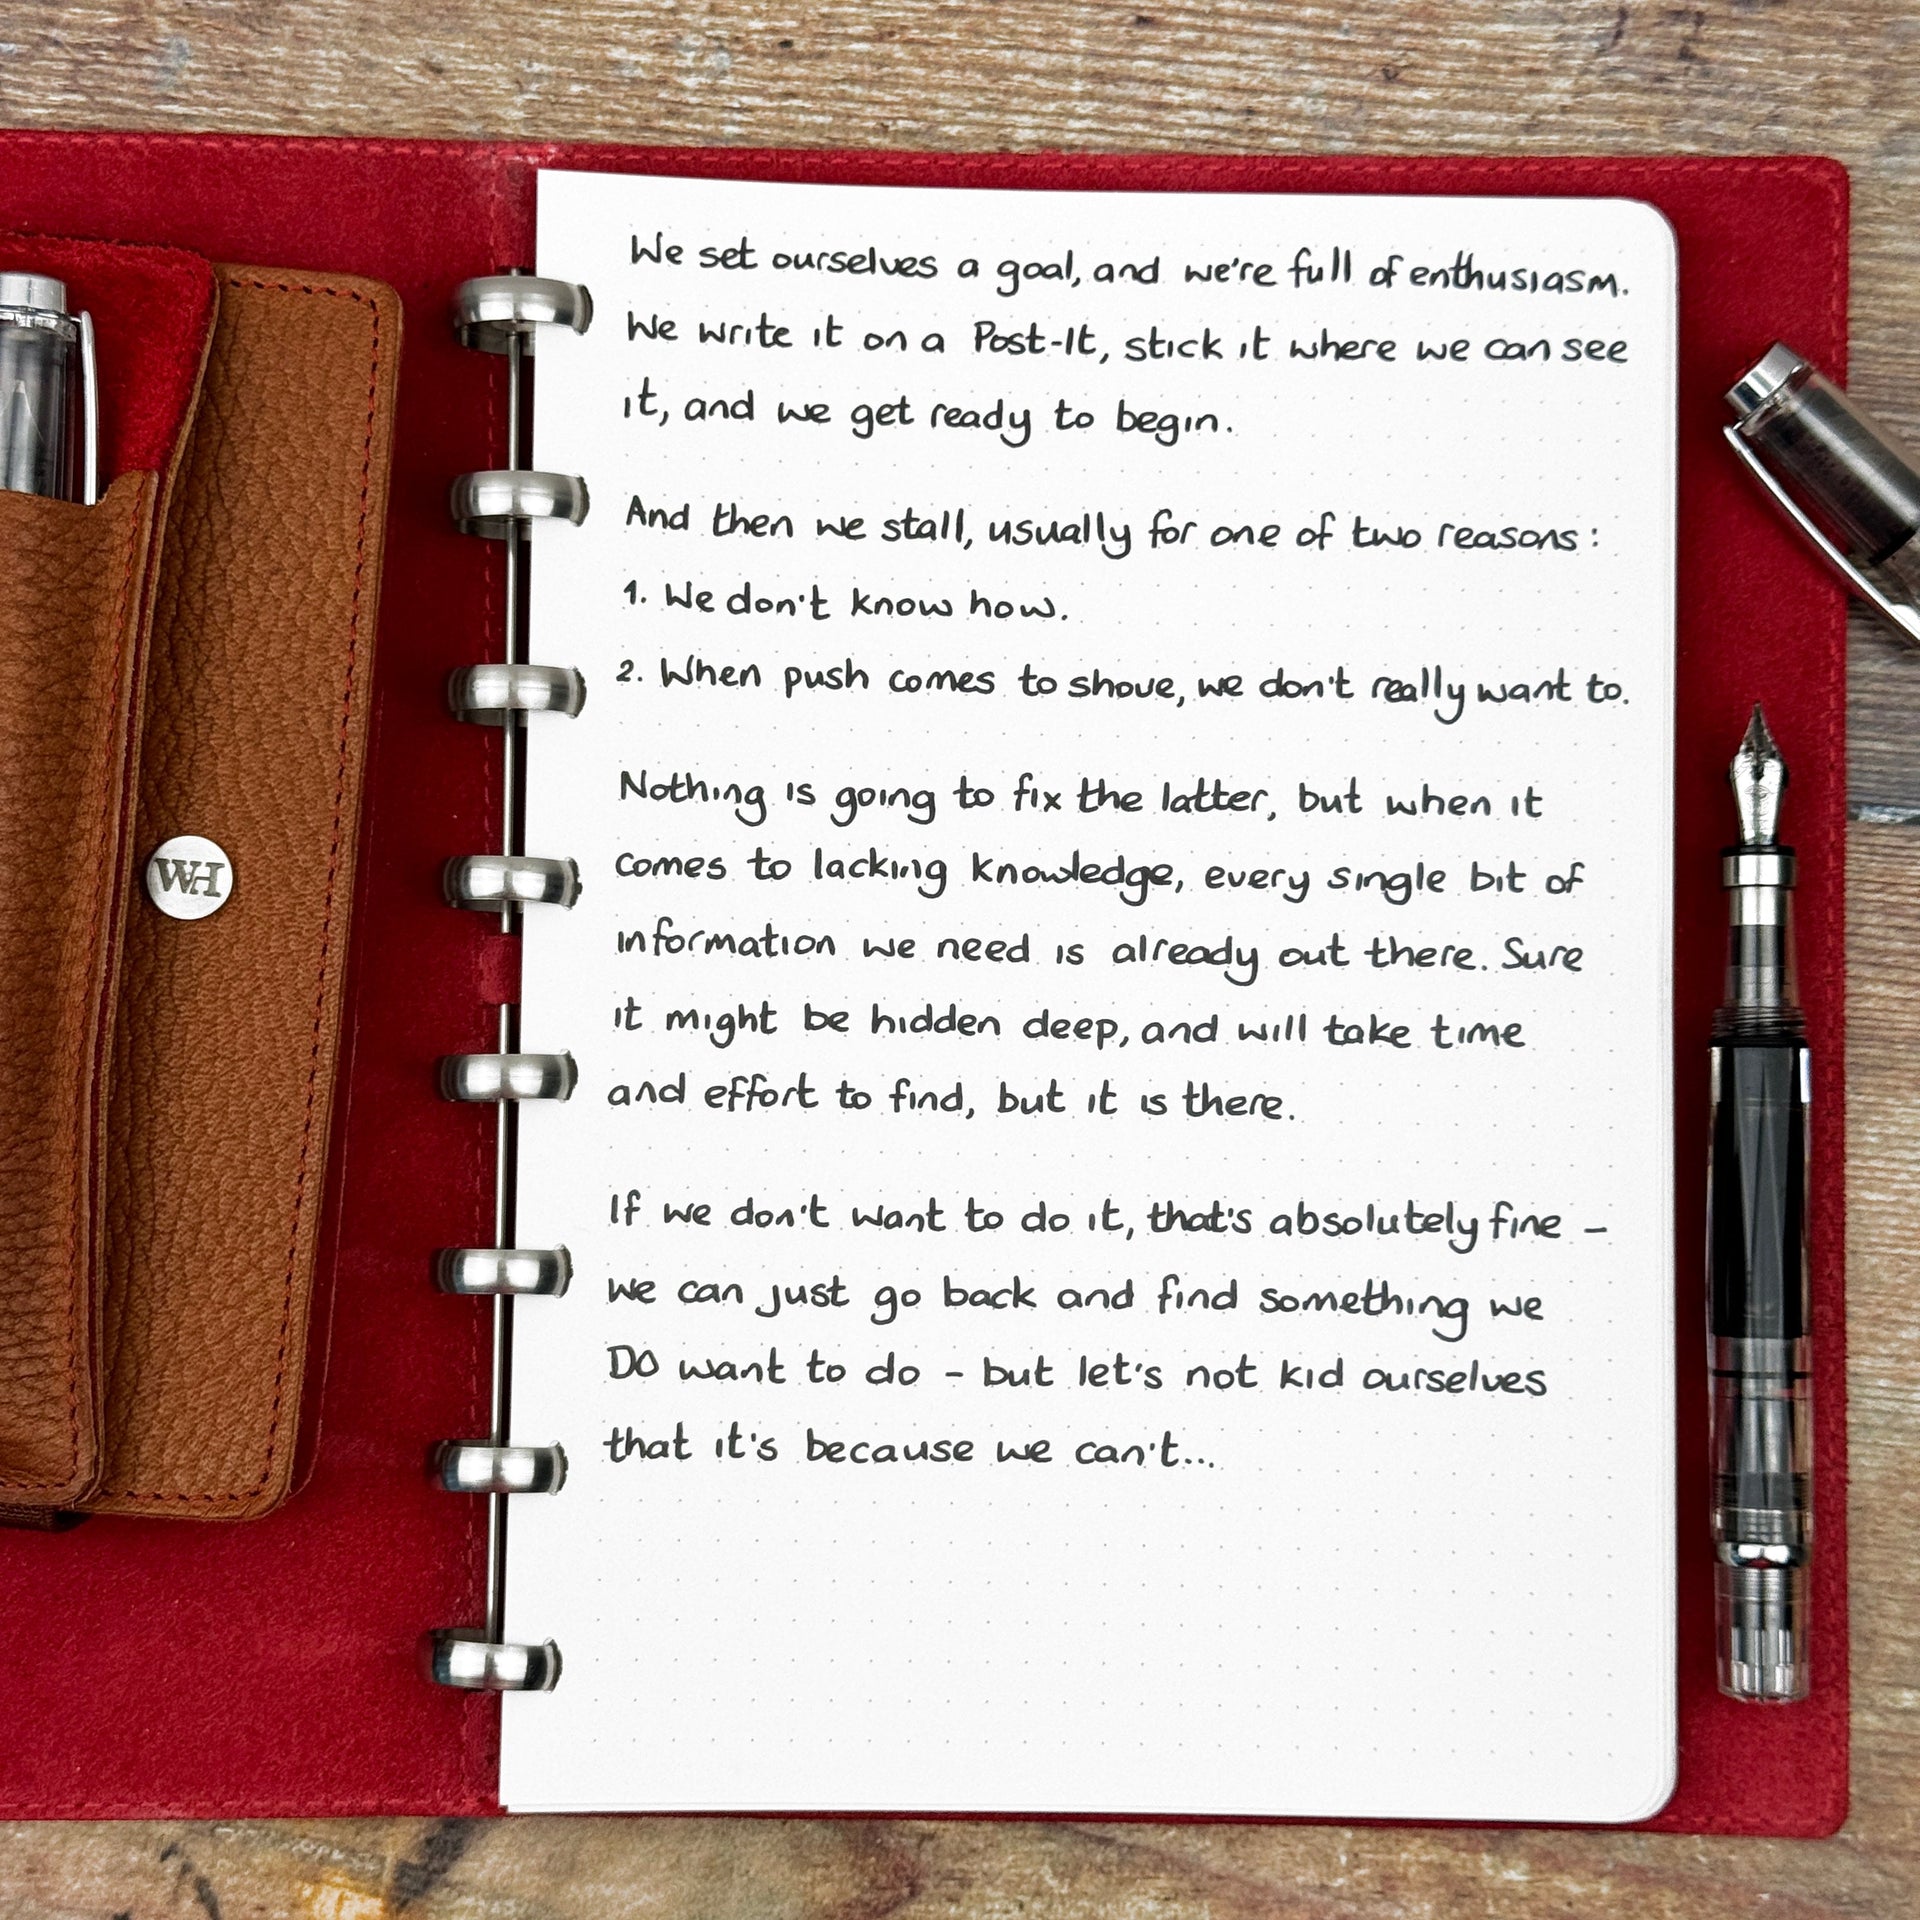 WH
We set ourselves a goal, and we're full of enthusiasm.
We write it on a Post-It, stick it where we can see
it, and we get ready to begin.
And then we stall, usually for one of two reasons:
1. We don't know how.
2. When push comes to shove, we don't really want to.
Nothing is going to fix the latter, but when it
comes to lacking knowledge, every single bit of
information we need is already out there. Sure
it might be hidden deep, and will take time
and effort to find, but it is there.
If we don't want to do it, that's absolutely fine –
we can just go back and find something we
DO want to do – but let's not kid ourselves
that it's because we can't...